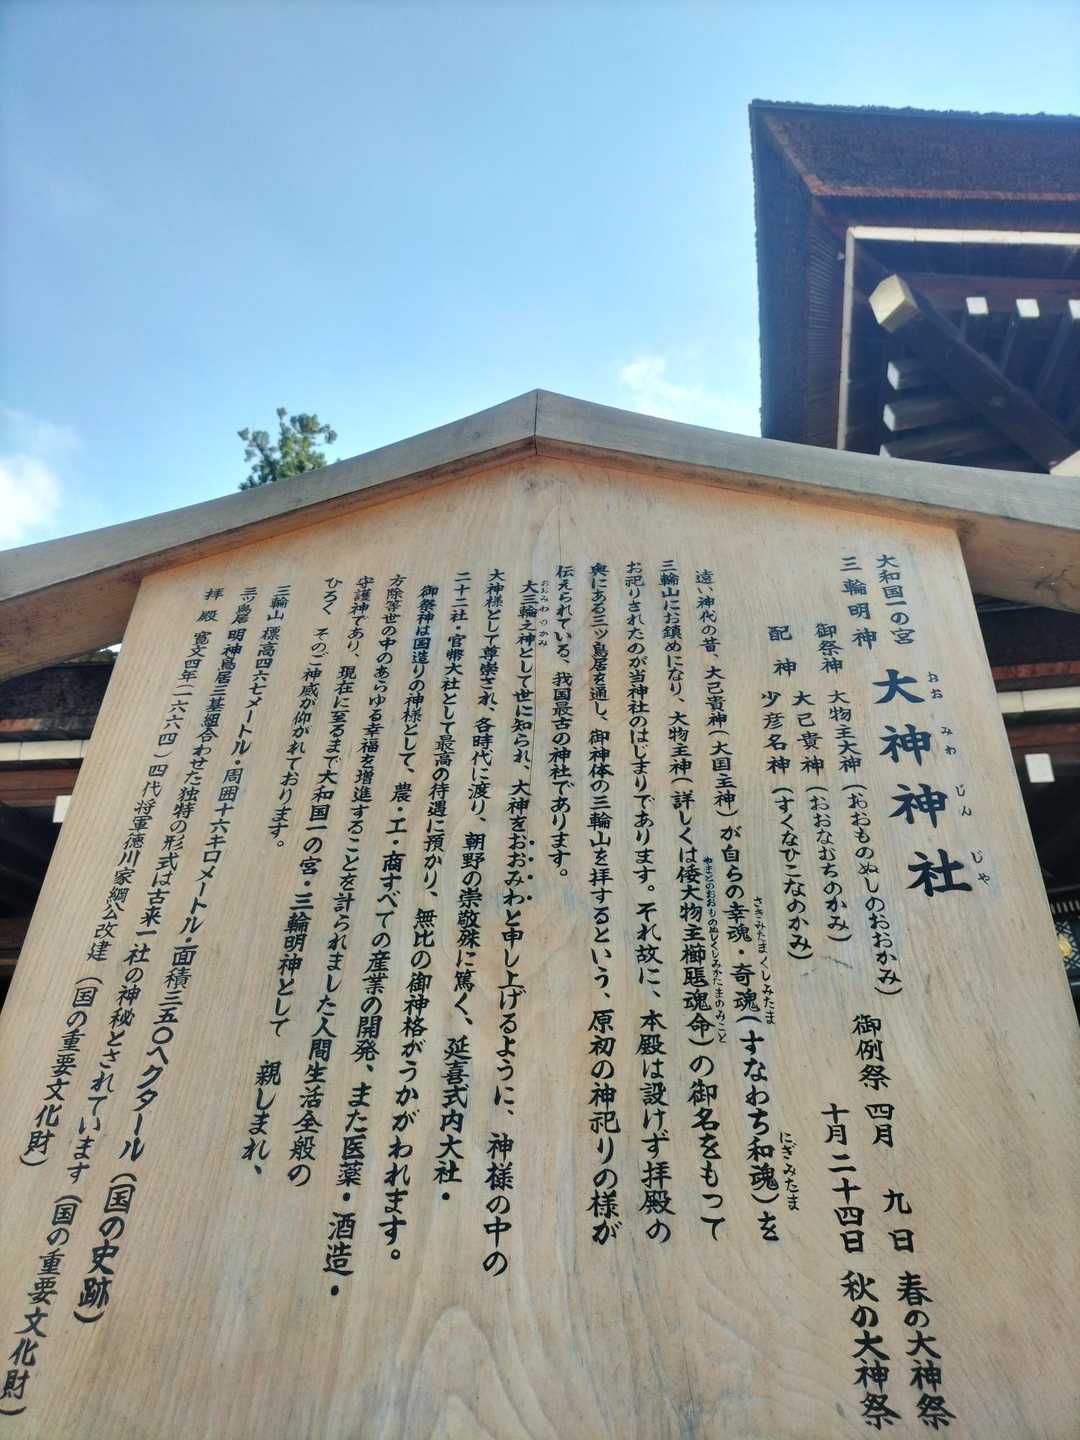 大和国一の宮
三輪明神
大神神社
おおみわじんじゃ
御祭神 大物主大神(おおものぬしのおおかみ)
大己貴神(おおなむちのかみ)
配神 少彦名神(すくなひこなのかみ)
御例祭 四月 九日 春の大神祭
十月二十四日 秋の大神祭
遠い神代の昔、大己貴神(大国主神)が自らの幸魂・奇魂(すなわち和魂)を
さきみたま くしみたま
にぎみたま
三輪山にお鎮めになり、大物主神(詳しくは倭大物主櫛𤭖魂命)の御名をもって
やまとのおおものぬしくしみかたまのみこと
お祀りされたのが当神社のはじまりであります。それ故に、本殿は設けず拝殿の
奥にある三ッ鳥居を通し、御神体の三輪山を拝するという、原初の神祀りの様が
伝えられている、我国最古の神社であります。
大三輪之神として世に知られ、大神をおおみわと申し上げるように、神様の中の
おおみわのかみ
大神様として尊崇され、各時代に渡り、朝野の崇敬殊に篤く、延喜式内大社・
二十二社・官幣大社として最高の待遇に預かり、無比の御神格がうかがわれます。
御祭神は国造りの神様として、農・工・商すべての産業の開発、また医薬・酒造・
方除等世の中のあらゆる幸福を増進することを計られました人間生活全般の
守護神であり、現在に至るまで大和国一の宮・三輪明神として 親しまれ、
ひろく そのご神威が仰がれております。
三輪山 標高四六七メートル・周囲十六キロメートル・面積三五〇ヘクタール(国の史跡)
三ッ鳥居 明神鳥居三基組合わせた独特の形式は古来一社の神秘とされています(国の重要文化財)
拝殿 寛文四年(一六六四)四代将軍徳川家綱公改建(国の重要文化財)